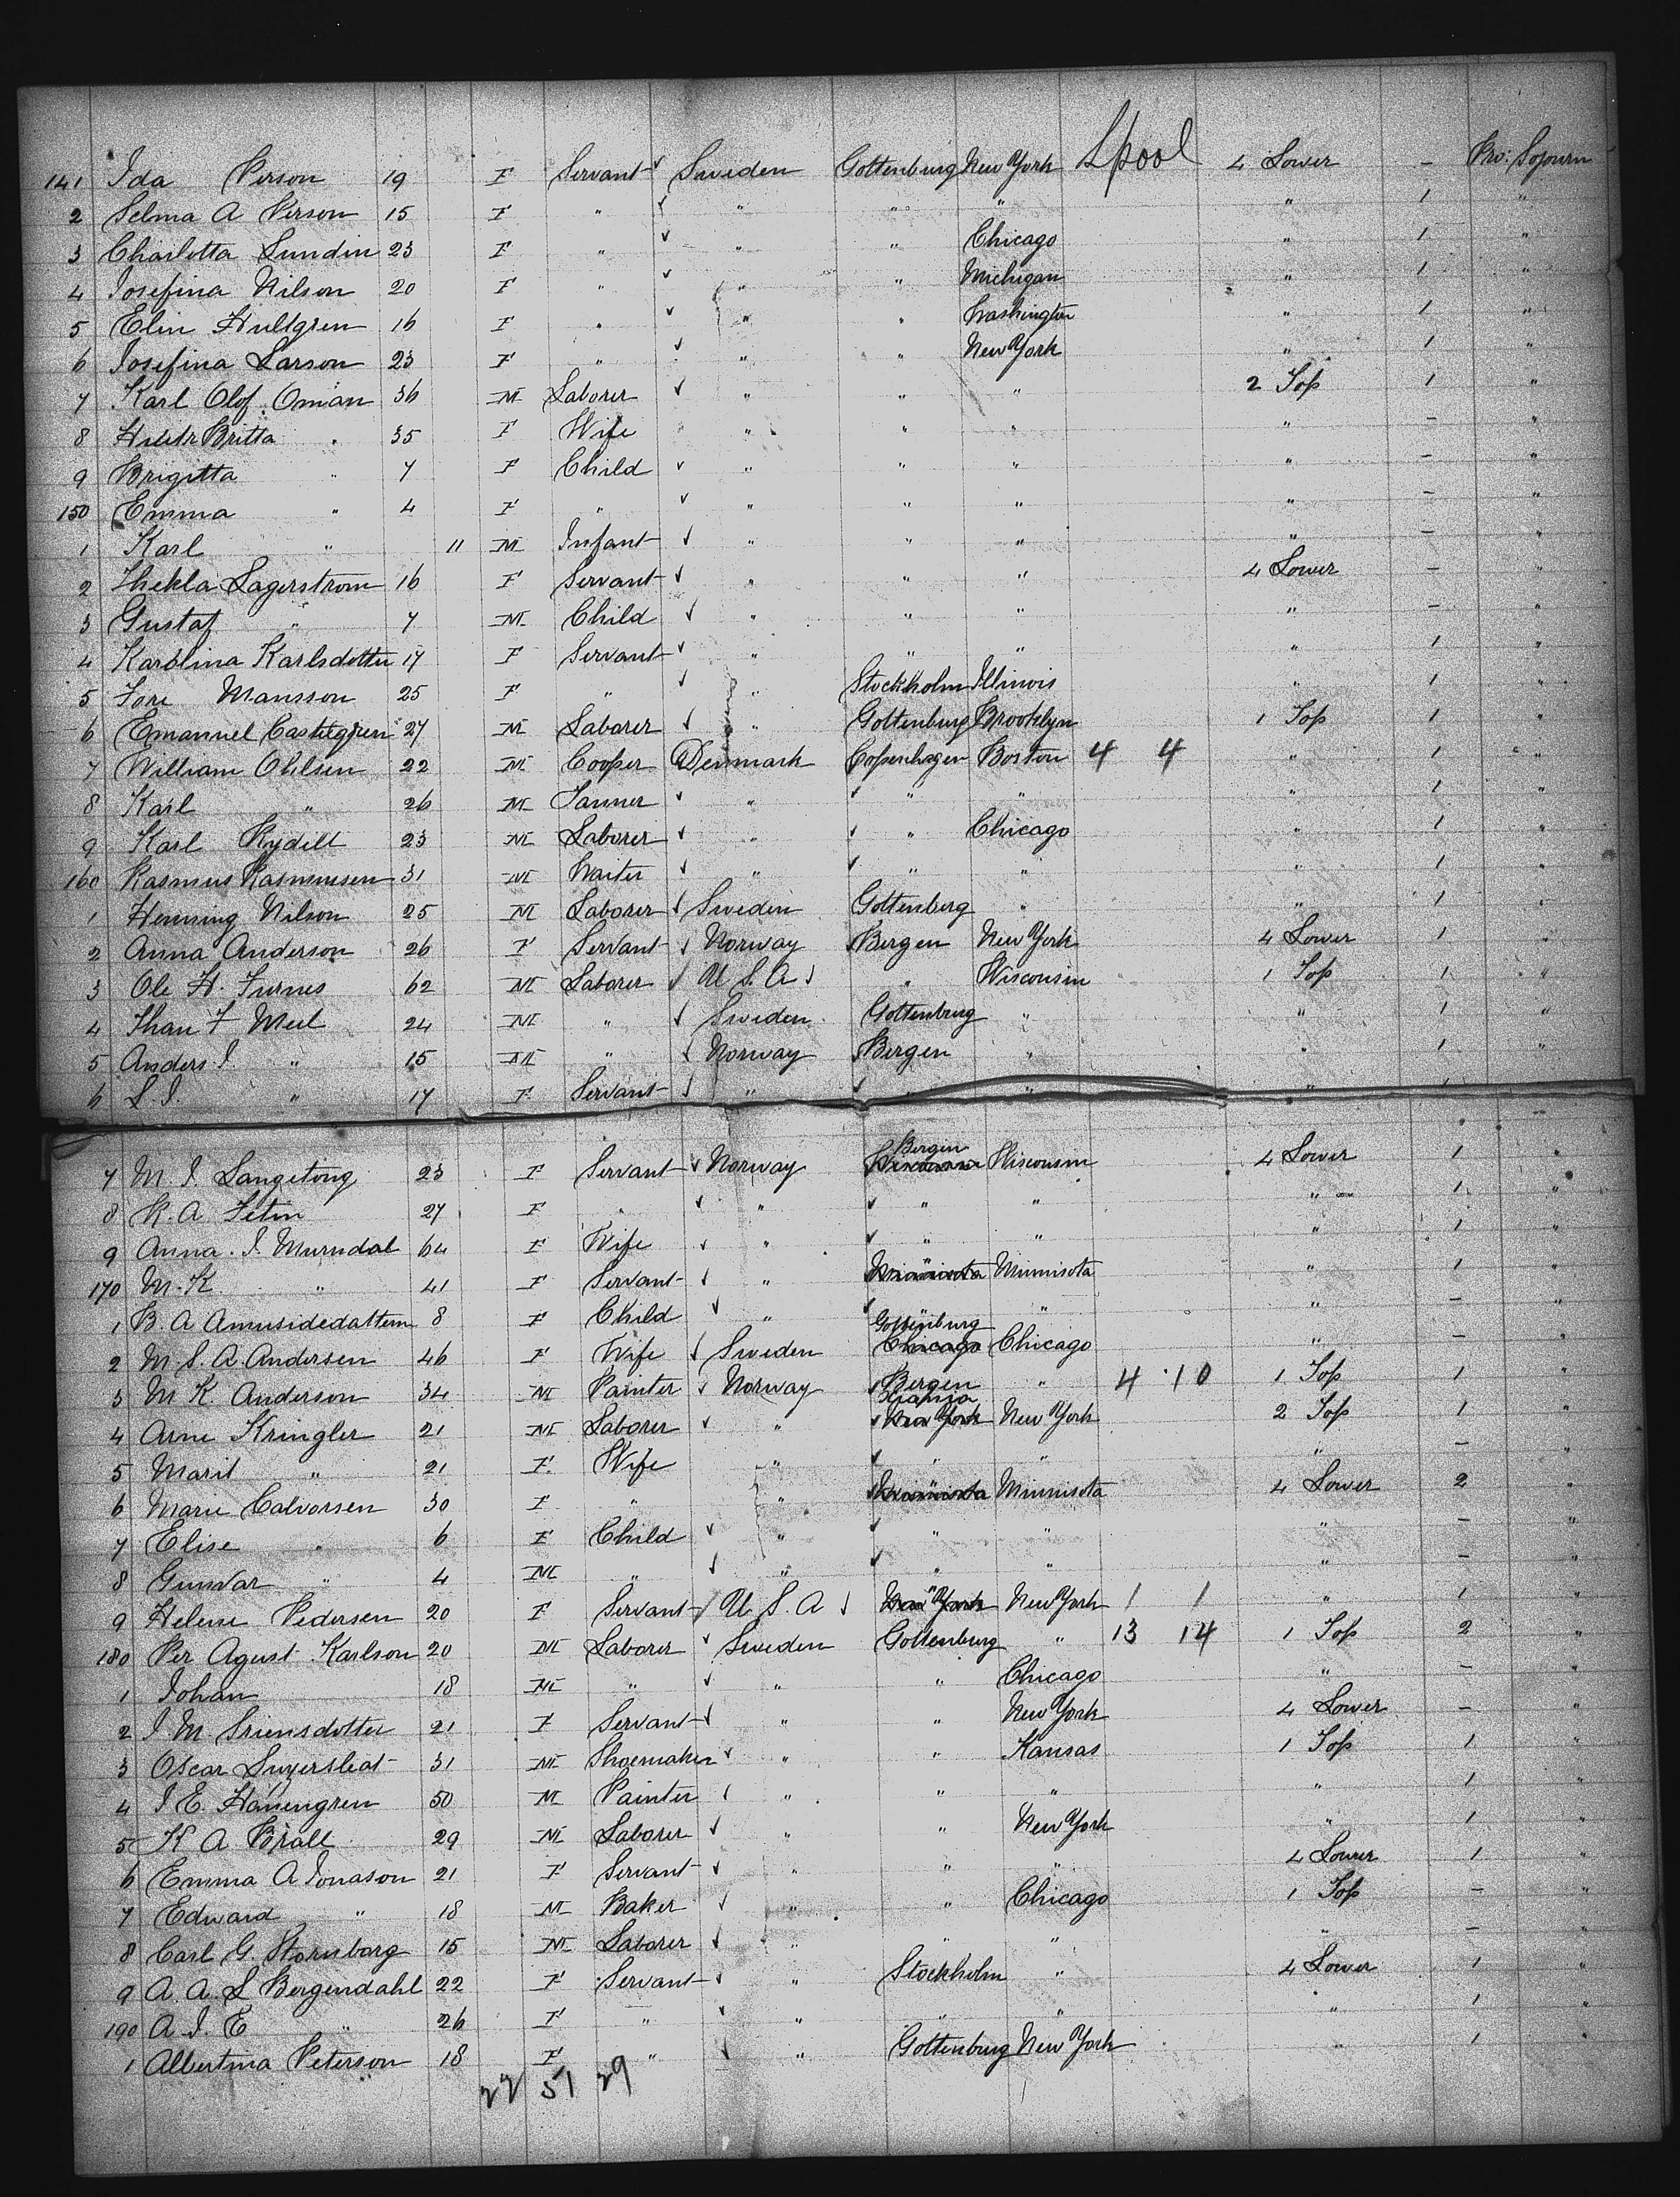 141 Ida Person 19 F Servant ✓ Sweden Gottenburg New York Lpool 4 Lower – Pro: Sojourn
2 Selma A Person 15 F " ✓ " " " " 1 "
3 Charlotta Lundin 23 F " ✓ " " Chicago " 1 "
4 Josefina Nilson 20 F " ✓ " " Michigan " 1 "
5 Elin Hultgren 16 F " ✓ " " Washington " 1 "
6 Josefina Larson 23 F " ✓ " " New York " 1 "
7 Karl Olof Oman 36 M Laborer ✓ " " " 2 Top 1 "
8 Britta " 35 F Wife " " " " – "
9 Brigitta " 7 F Child ✓ " " " " – "
150 Emma " 4 F " ✓ " " " " – "
1 Karl " 11 M Infant ✓ " " " " – "
2 Thekla Lagerstrom 16 F Servant ✓ " " " 4 Lower – "
3 Gustaf " 7 M Child ✓ " " " " – "
4 Karolina Karlsdotter 17 F Servant ✓ " " " " 1 "
5 Tore Mansson 25 F " ✓ " Stockholm Illinois " 1 "
6 Emanuel 27 M Laborer ✓ " Gottenburg Brooklyn 1 Top 1 "
7 William Ohlsen 22 M Cooper Denmark Copenhagen Boston 4 4 " 1 "
8 Karl " 26 M Tanner ✓ " ✓ " " " 1 "
9 Karl Rydell 23 M Laborer ✓ " ✓ " Chicago " 1 "
160 Rasmus Rasmussen 31 M Waiter ✓ " ✓ " " " 1 "
1 Henning Nilson 25 M Laborer ✓ Sweden Gottenberg " " 1 "
2 Anna Anderson 26 F Servant ✓ Norway Bergen New York 4 Lower 1 "
3 Ole H. Furnes 62 M Laborer ✓ U S. A ✓ " Wisconsin 1 Top 1 "
4 24 M " ✓ Sweden Gottenburg " " 1 "
5 Anders I. " 15 M " ✓ Norway Bergen " " 1 "
6 L. I. " 17 F Servant ✓ " ✓ " " " 1
7 M. I. Langeting 23 F Servant ✓ Norway Bergen Wisconsin Wisconsin 4 Lower 1 "
8 K. A Tetin 27 F " ✓ " ✓ " " " 1 "
9 Anna. I. Murndal 64 F Wife ✓ " ✓ " " " 1 "
170 M. K " 41 F Servant ✓ " Minnisota Minnisota " 1 "
1 B. A 8 F Child ✓ " ✓ " " – "
2 M. S. A Andersen 46 F Wife ✓ Sweden Gottenburg Chicago Chicago " – "
3 M K. Anderson 34 M Painter ✓ Norway ✓ Bergen " 4 10 1 Top 1 "
4 Arne Kringler 21 M Laborer ✓ " Xiania ✓ New York New York 2 Top 1 "
5 Marit " 21 F Wife " ✓ " " " – "
6 Marie Calvorsen 30 F " " ✓ Minnisota Minnisota 4 Lower 2 "
7 Elise " 6 F Child ✓ " ✓ " " " – "
8 Gunvar " 4 M " ✓ " ✓ " " " – "
9 Helene Pedersen 20 F Servant ✓ U. S. A ✓ New York New York 1 1 " 1 "
180 Per Agust Karlson 20 M Laborer ✓ Sweden Gottenburg " 13 14 1 Top 2 "
1 Johan 18 M " ✓ " " Chicago " – "
2 I. M. 21 F Servant ✓ " " New York 4 Lower – "
3 Oscar 31 M Shoemaker ✓ " " Kansas 1 Top 1 "
4 I E. 50 M Painter ✓ " " " " 1 "
5 K A Brall 29 M Laborer ✓ " " New York " 1 "
6 Emma A Jonason 21 F Servant ✓ " " " 4 Lower 1 "
7 Edward " 18 M Baker ✓ " " Chicago 1 Top – "
8 Carl G. Stornborg 15 M Laborer ✓ " " " " – "
9 A. A. L Bergendahl 22 F Servant ✓ " Stockholm " 4 Lower 1 "
190 A. I. E " 26 F " ✓ " " " " 1 "
1 Albertina Peterson 18 F " ✓ " Gottenburg New York " 1 "
22 51 29